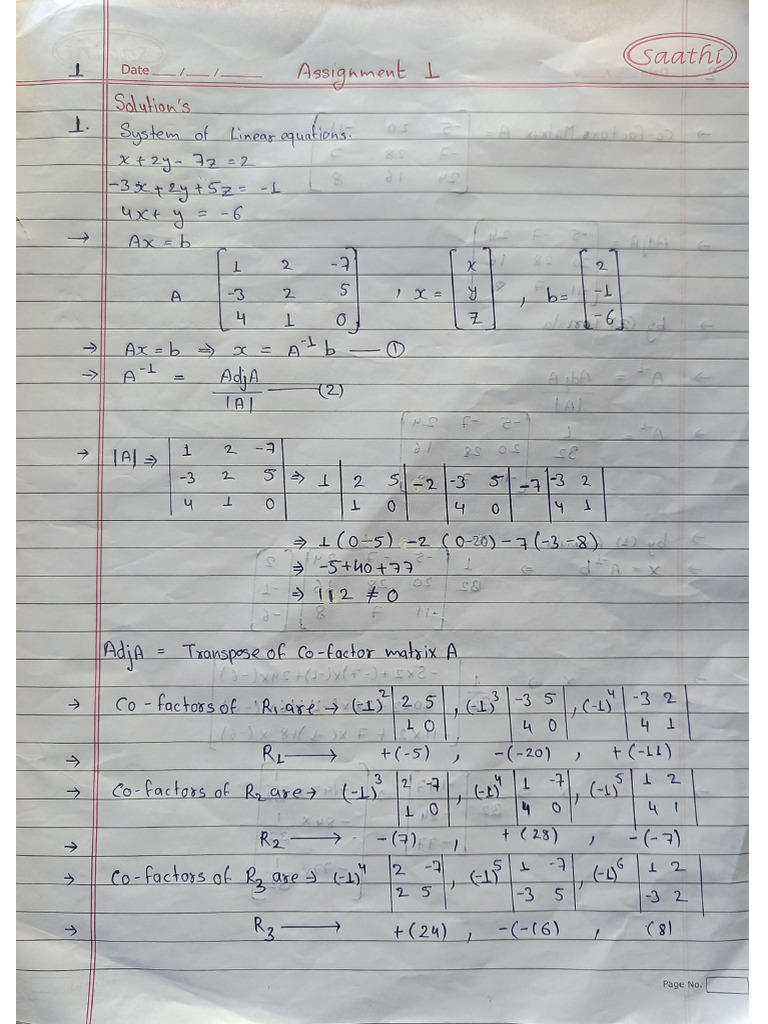 saathi
1 Date ___/___/___ Assignment 1
Solution's
1. System of Linear equations.
x + 2y - 7z = 2
-3x + 2y + 5z = -1
4x + y = -6
→ Ax = b
A [1 2 -7; -3 2 5; 4 1 0], x = [x; y; z], b = [2; -1; -6]
→ Ax = b ⇒ x = A⁻¹ b — ①
→ A⁻¹ = AdjA / |A| — (2)
→ |A| ⇒ |1 2 -7; -3 2 5; 4 1 0| ⇒ 1 |2 5; 1 0| -2 |-3 5; 4 0| -7 |-3 2; 4 1|
⇒ 1(0-5) -2 (0-20) -7(-3-8)
⇒ -5+40+77
⇒ 112 ≠ 0
AdjA = Transpose of Co-factor matrix A
→ Co-factors of R₁ are → (-1)² |2 5; 1 0|, (-1)³ |-3 5; 4 0|, (-1)⁴ |-3 2; 4 1|
→ R₁ → +(-5), -(-20), +(-11)
→ Co-factors of R₂ are → (-1)³ |2 -7; 1 0|, (-1)⁴ |1 -7; 4 0|, (-1)⁵ |1 2; 4 1|
→ R₂ → -(7), +(28), -(-7)
→ Co-factors of R₃ are → (-1)⁴ |2 -7; 2 5|, (-1)⁵ |1 -7; -3 5|, (-1)⁶ |1 2; -3 2|
→ R₃ → +(24), -(-16), (8)
Page No.